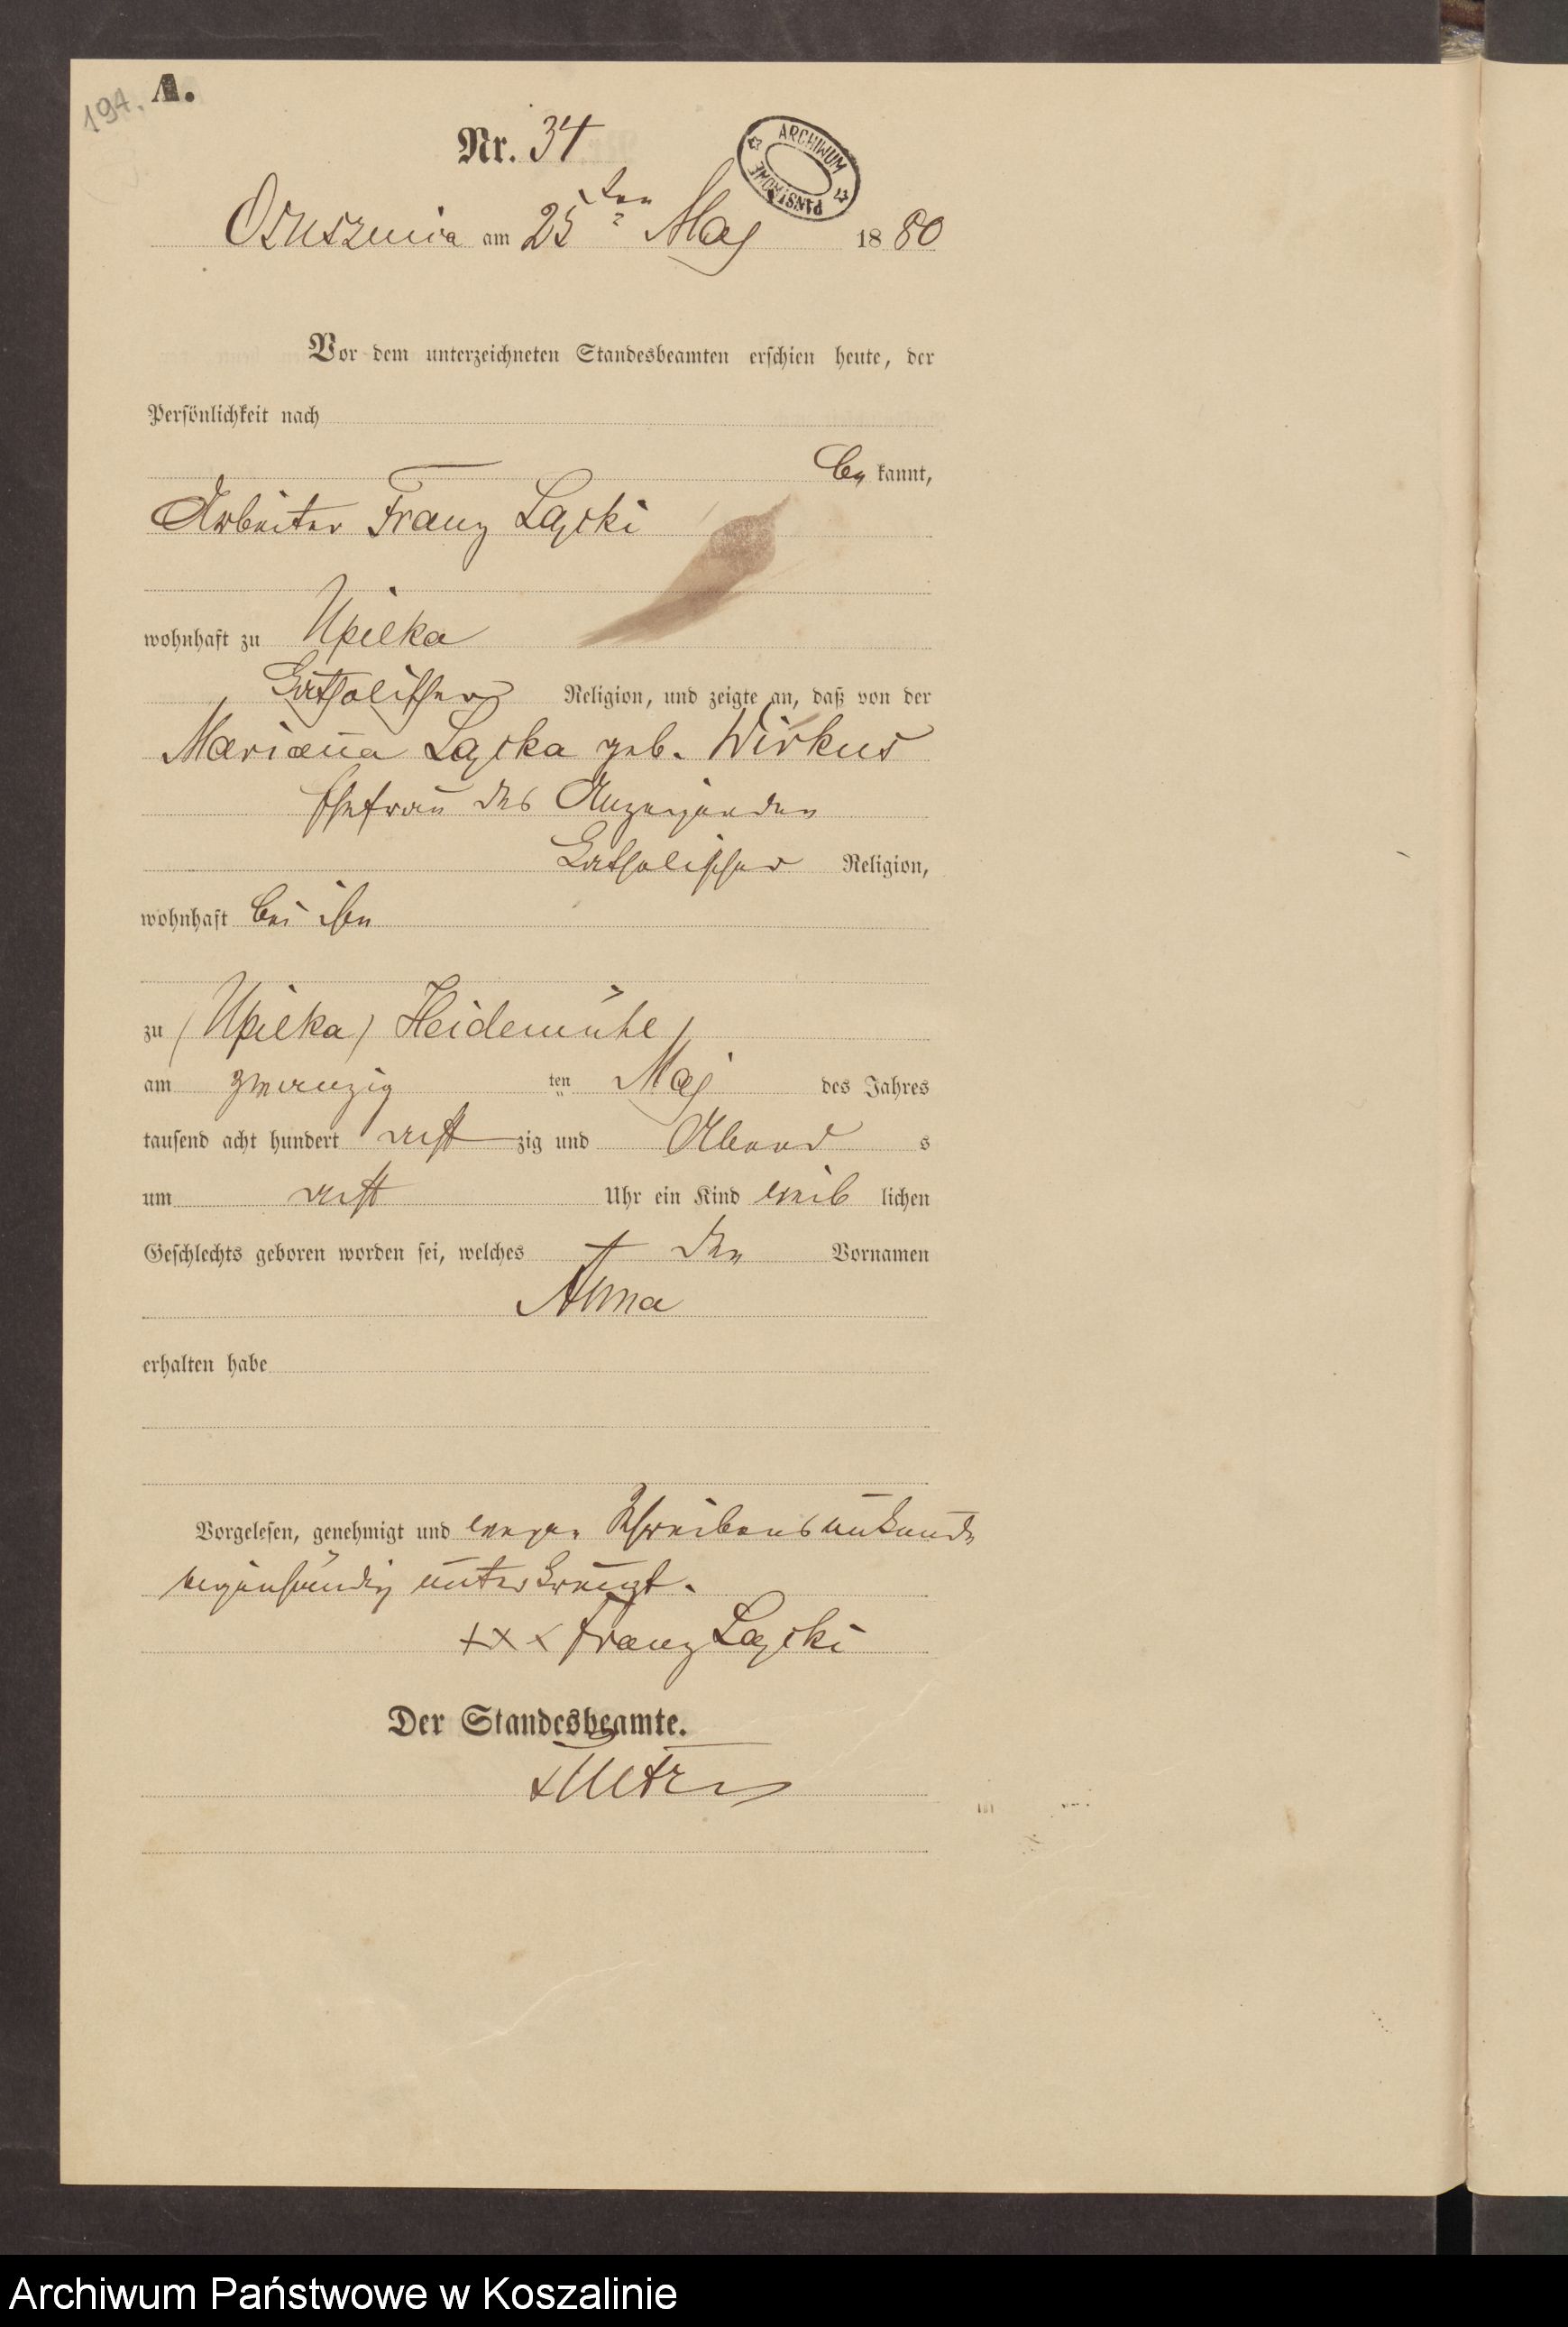 194.
A.
Nr. 34
ARCHIWUM PAŃSTWOWE
Osusznica am 25ten Maj 1880
Vor dem unterzeichneten Standesbeamten erschien heute, der
Persönlichkeit nach
be kannt,
Arbeiter Franz Lącki
wohnhaft zu Upilka
Katholischer Religion, und zeigte an, daß von der
Marianna Lącka geb. Wirkus
Ehefrau des Anzeigenden
Katholischer Religion,
wohnhaft bei ihm
zu (Upilka) Heidemühl
am zwanzig ten Maj des Jahres
tausend acht hundert acht zig und Abend s
um acht Uhr ein Kind weib lichen
Geschlechts geboren worden sei, welches den Vornamen
Anna
erhalten habe
Vorgelesen, genehmigt und wegen Schreibensunkunde
eigenhändig unterkreuzt.
+++ Franz Lącki
Der Standesbeamte.
Archiwum Państwowe w Koszalinie